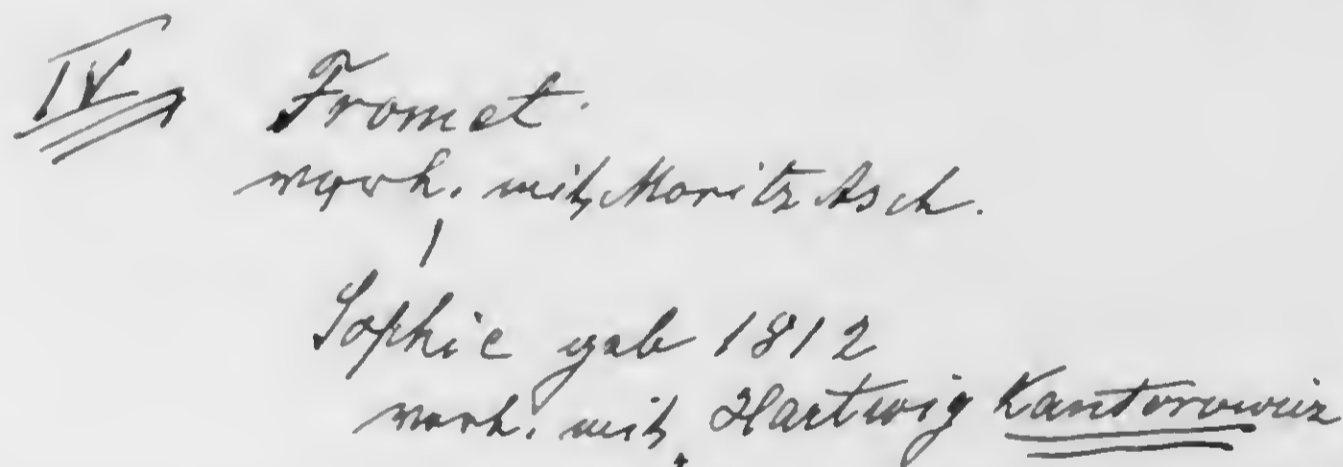 IV, Fromet.
verh. mit Moritz Asch.
Sophie geb 1812
verh. mit Hartwig Kantorowicz